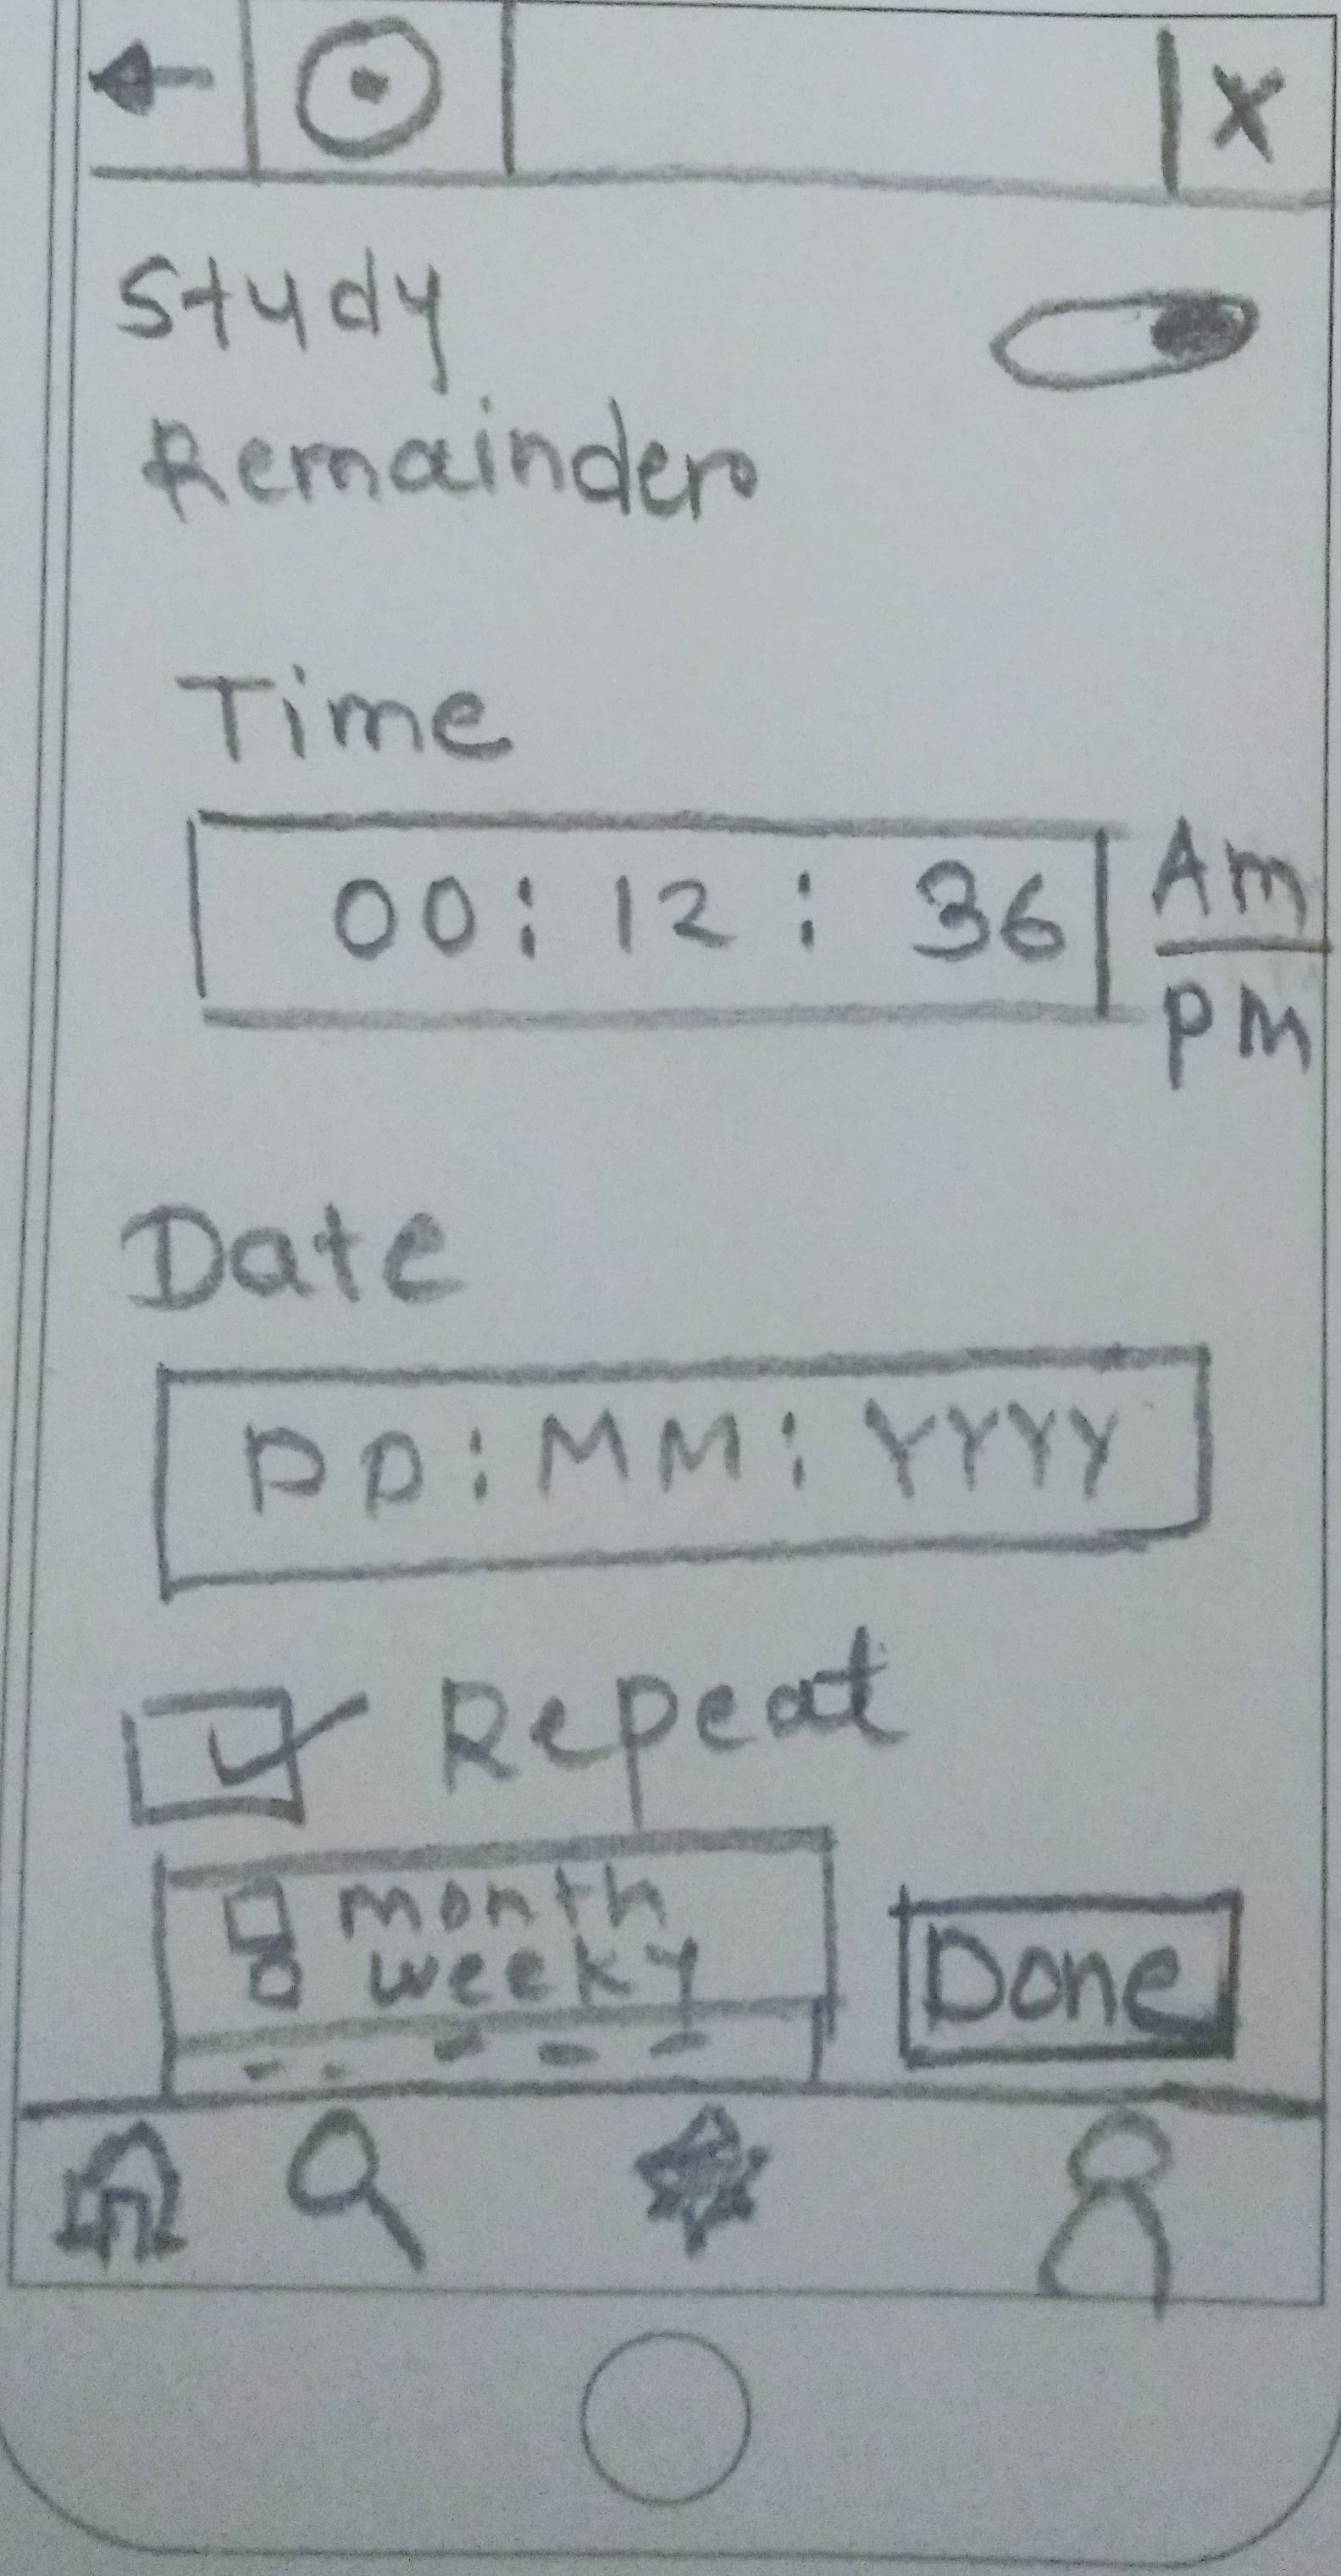 X
Study
Remainder
Time
00 : 12 : 36 Am
pm
Date
DD : MM : YYYY
Repeat
month
weeky
Done